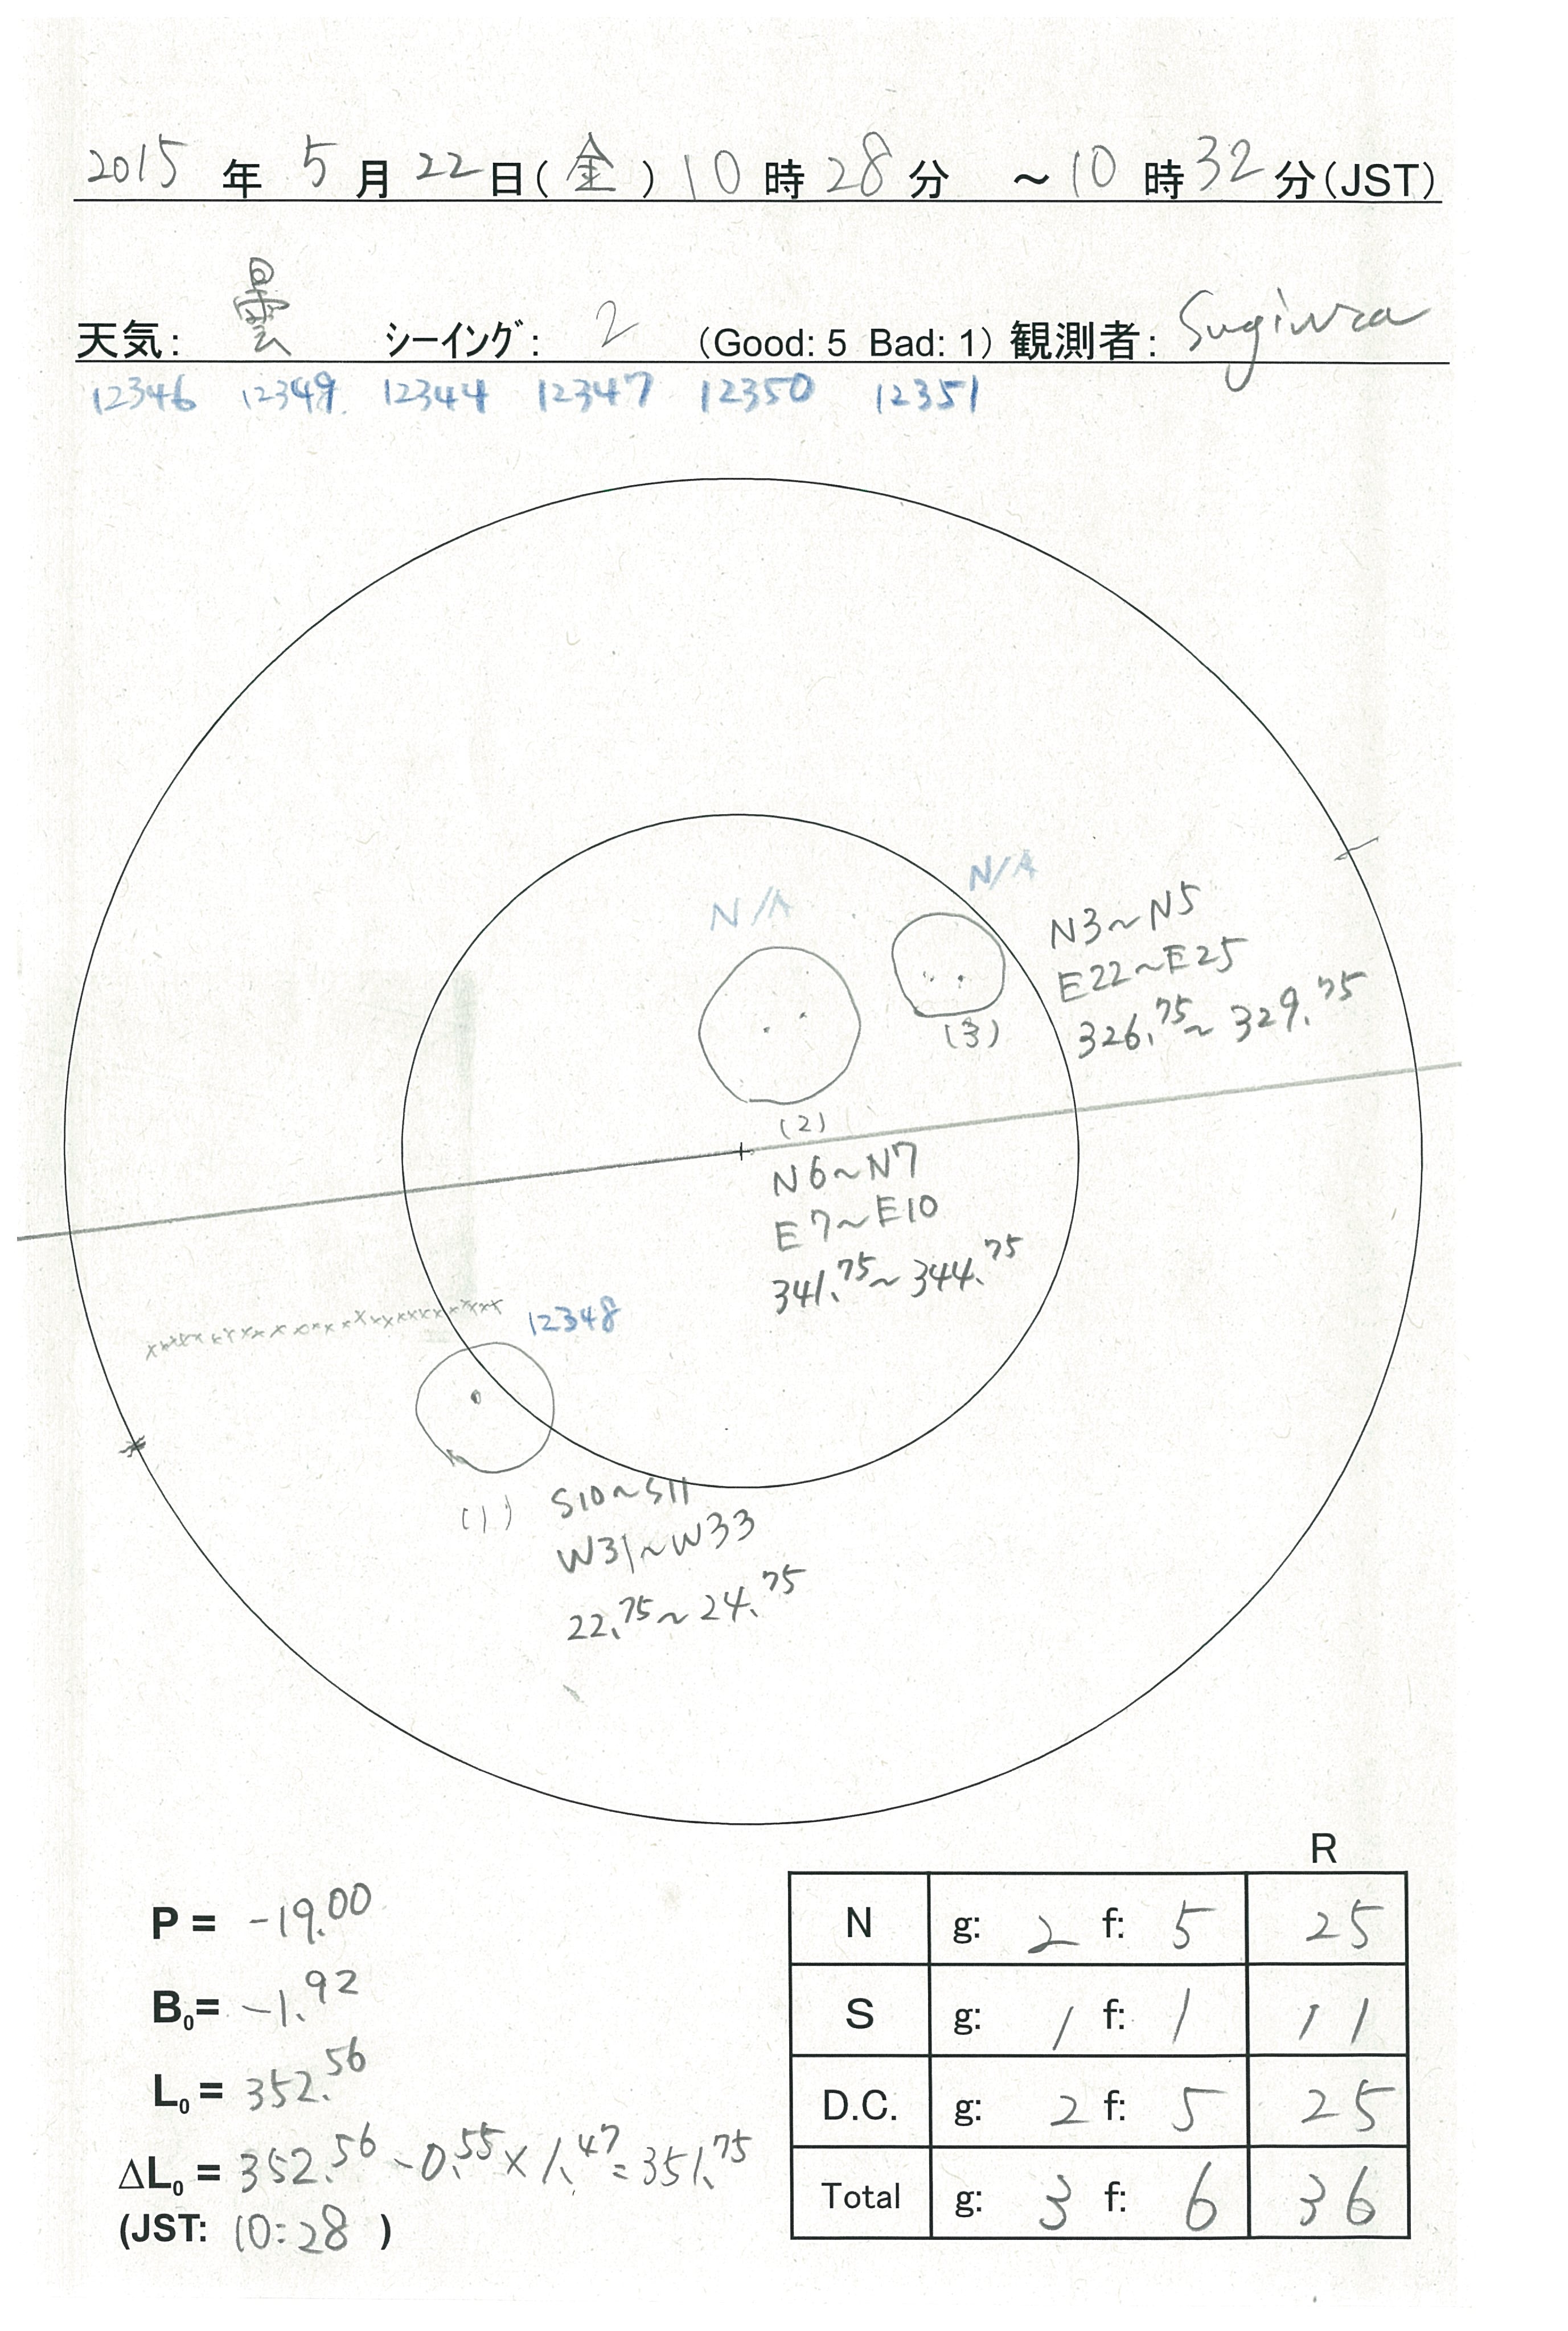 2015 年 5 月 22 日(金) 10 時 28 分 ～10 時 32 分(JST)
天気: 曇 シーイング: 2 (Good: 5 Bad: 1) 観測者: Sugiura
12346 12349 12344 12347 12350 12351
N/A
N/A
N3~N5
E22~E25
326.75~329.75
(3)
(2)
N6~N7
E7~E10
341.75~344.75
12348
(1)
S10~S11
W31~W33
22.75~24.75
R
N g: 2 f: 5 25
S g: 1 f: 1 11
D.C. g: 2 f: 5 25
Total g: 3 f: 6 36
P = -19.00
B₀= -1.92
L₀ = 352.56
ΔL₀ = 352.56-0.55×1.47=351.75
(JST: 10:28 )